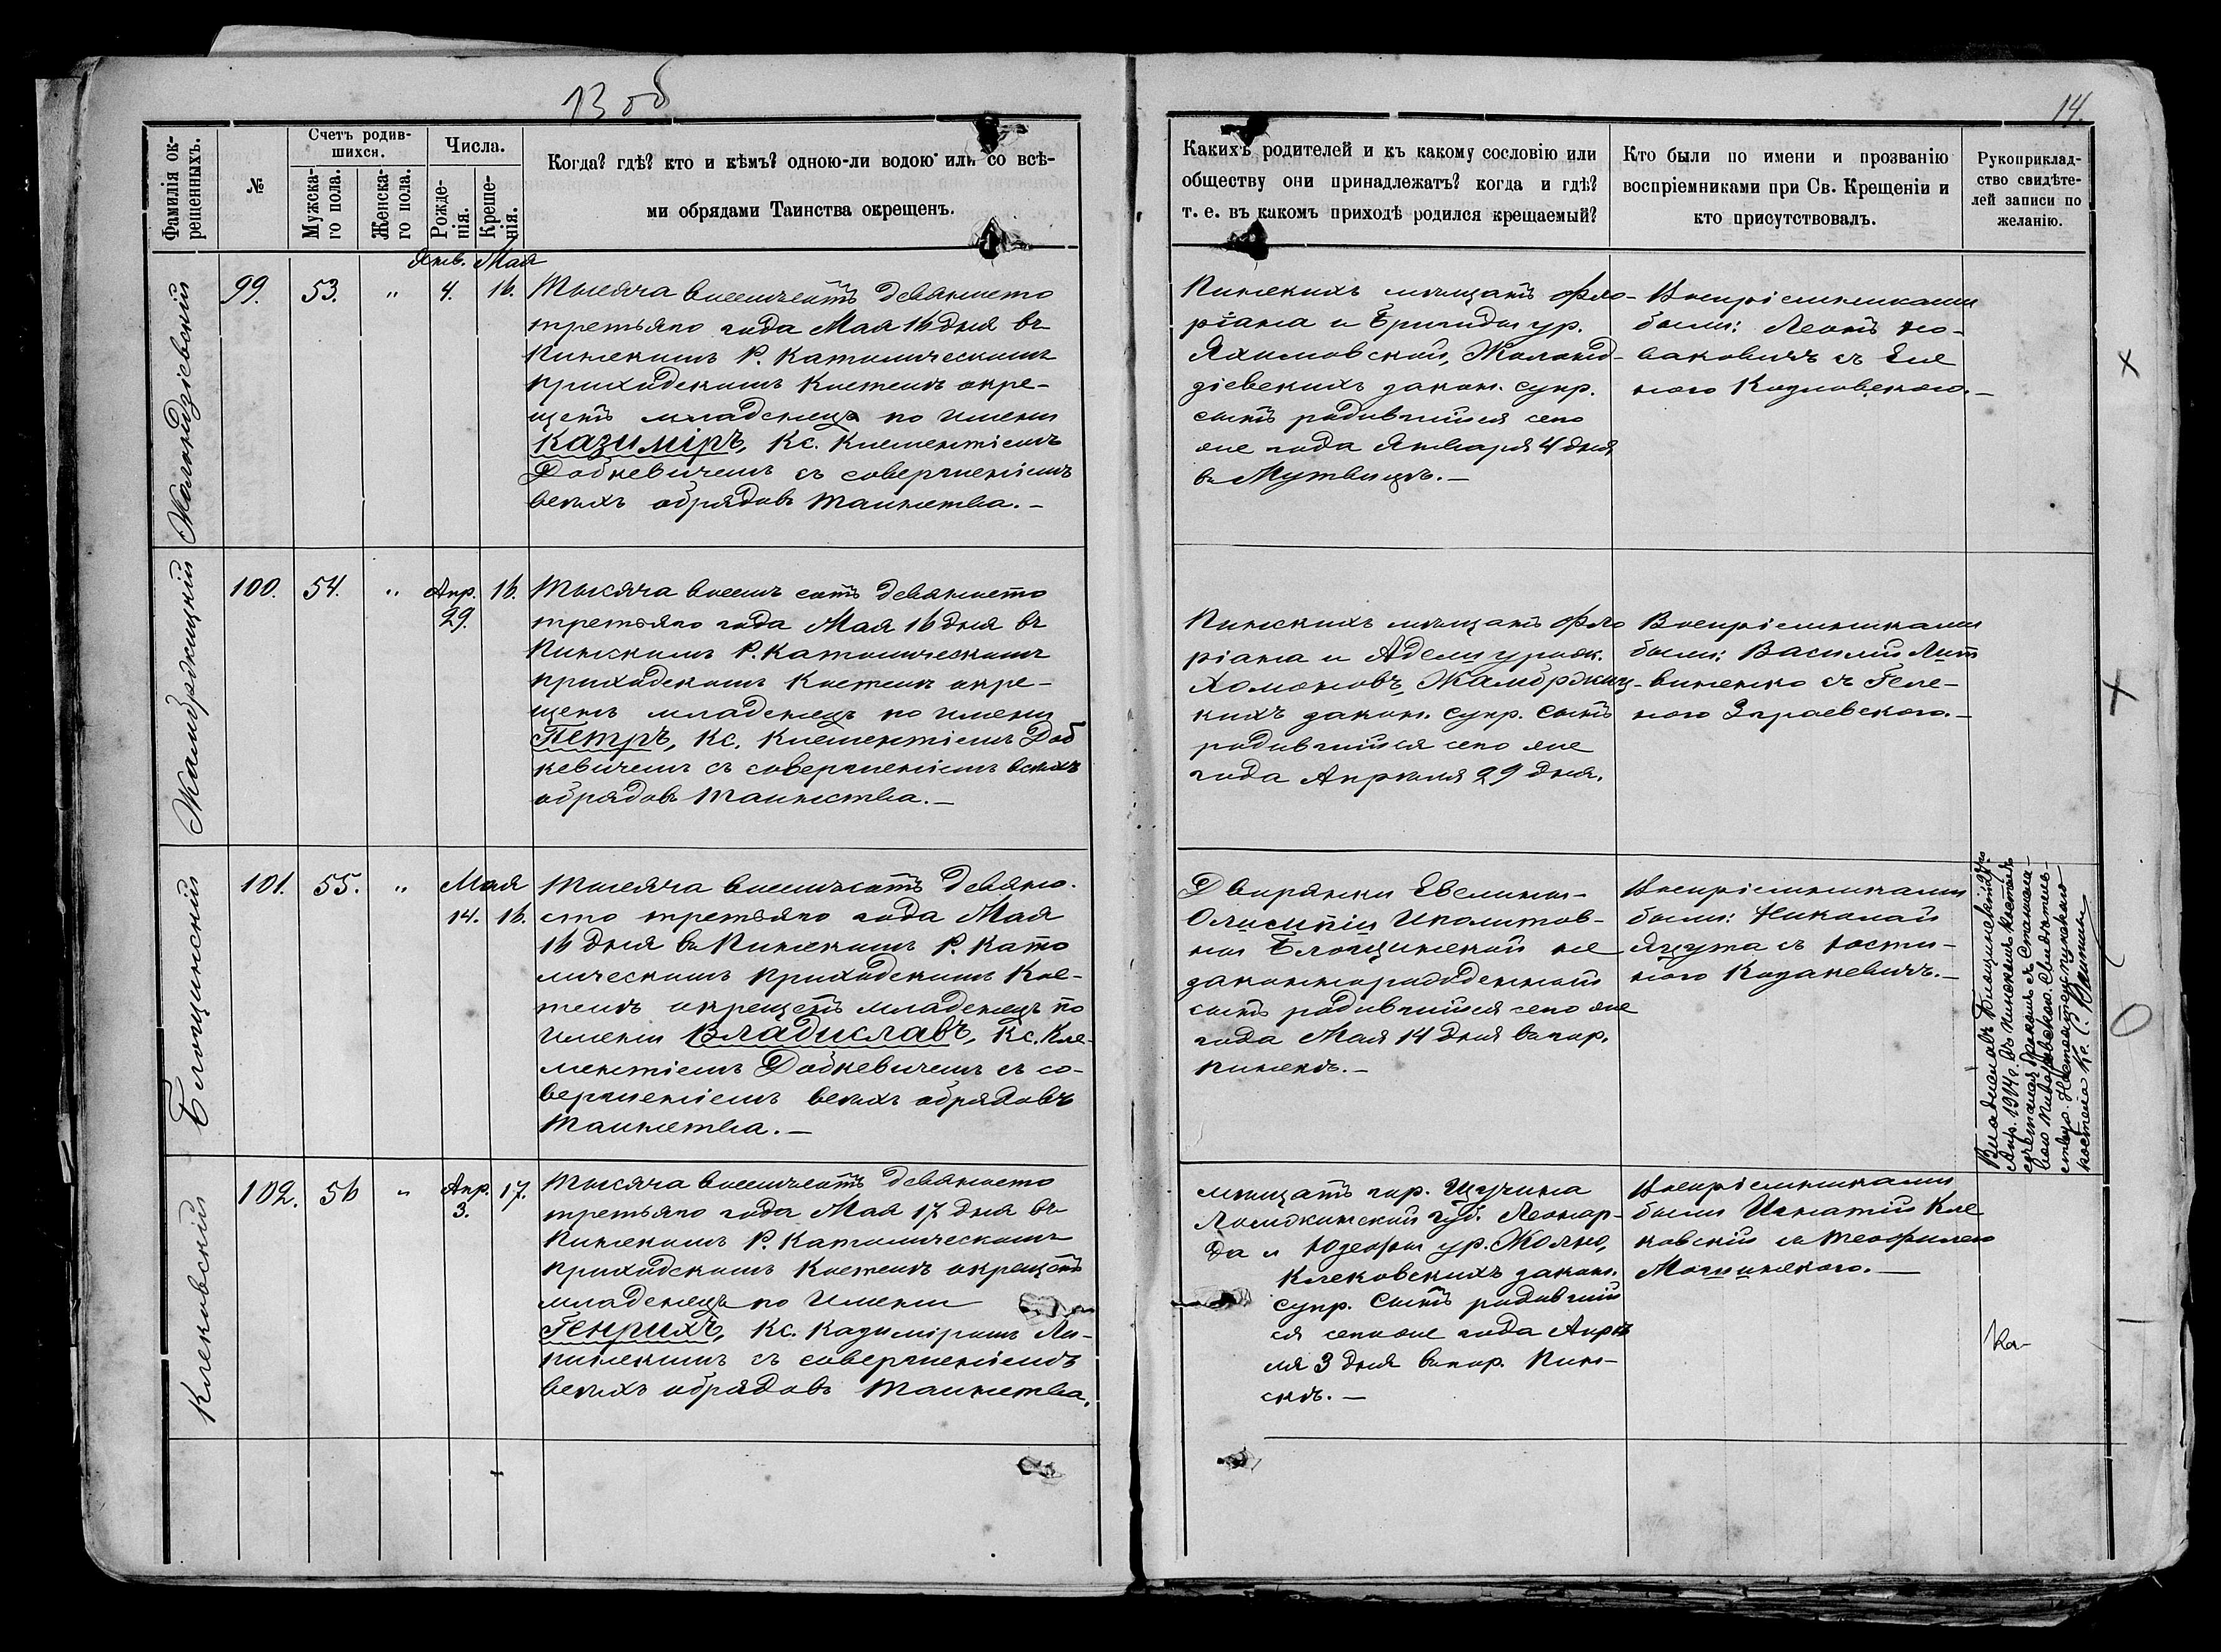 13 об
14.
Фамилія ок-
рещенныхъ.
№
Счетъ родив-
шихся.
Мужеска-
го пола.
Женска-
го пола.
Числа.
Рожде-
нія.
Креще-
нія.
Когда? гдѣ? кто и кѣмъ? одною-ли водою или со всѣ-
ми обрядами Таинства окрещенъ.
Какихъ родителей и къ какому сословію или
обществу они принадлежатъ? когда и гдѣ?
т. е. въ какомъ приходѣ родился крещаемый?
Кто были по имени и прозванію
воспріемниками при Св. Крещеніи и
кто присутствовалъ.
Рукоприклад-
ство свидѣте-
лей записи по
желанію.
Янв. Мая
99. 53. " 4. 16.
Тысяча восемьсотъ девяносто
третьяго года Мая 16 дня въ
Пинскомъ Р. Католическомъ
приходскомъ Костелѣ окре-
щенъ младенецъ по имени
Казиміръ, Кс. Климентіемъ
Добкевичемъ съ совершеніемъ
всѣхъ обрядовъ таинства. –
Пинскихъ мѣщанъ Фло-
ріана и Бригиды ур.
Яхимовской,
дзіевскихъ закон. супр.
сынъ родившійся сего
же года Января 4 дня
въ Мутвицѣ. –
Воспріемниками
были: Леонъ Но-
ваковичъ съ Еле
ною Козловскою. –
100. 54. " Апр. 16.
29.
Тысяча восемь сотъ девяносто
третьяго года Мая 16 дня въ
Пинскомъ Р. Католическомъ
приходскомъ Костелѣ окре-
щенъ младенецъ по имени
Петръ, Кс. Климентіемъ Доб
кевичемъ съ совершеніемъ всѣхъ
обрядовъ таинства. –
Пинскихъ мѣщанъ Фло
ріана и Адели урож.
Хомоковъ,
кихъ закон. супр. сынъ
родившійся сего же
года Апрѣля 29 дня.
Воспріемниками
были: Василій Лит
виненко съ Геле-
ною Заревскою. –
Блощинскій
101. 55. " Мая
14. 16.
Тысяча восемьсотъ девяно-
сто третьяго года Мая
16 дня въ Пинскомъ Р. Като
лическомъ приходскомъ Кос-
телѣ окрещенъ младенецъ по
имени Владиславъ, Кс. Кле-
ментіемъ Добкевичемъ съ со-
вершеніемъ всѣхъ обрядовъ
таинства. –
Дворянки Евелины-
Олимпіи Иполитов-
ны Блощинской не
законнорожденный
сынъ родившійся сего же
года Мая 14 дня въ гор.
Пинскѣ. –
Воспріемниками
были: Николай
Яцута съ Юсти-
ною Козакевичъ. –
Владиславъ Блощинскій
Апр. 1914 г. въ Пинскомъ костелѣ
бракомъ съ
костела Кс.
Клековскій
102. 56 " Апр. 17.
3.
Тысяча восемьсотъ девяносто
третьяго года Мая 17 дня въ
Пинскомъ Р. Католическомъ
приходскомъ Костелѣ окрещенъ
младенецъ по имени
Генрихъ, Кс. Казиміромъ Ли-
пинскимъ съ совершеніемъ
всѣхъ обрядовъ таинства.
мѣщанъ гор. Щучина
Ломжинской губ. Леонар-
да и Юзефы ур. Жолно,
Клековскихъ закон.
супр. сынъ родивший
ся сего же года Апрѣ
ля 3 дня въ гор. Пин-
скѣ. –
Воспріемниками
были Игнатій Кле
ковскій съ Теофилею
Могилинскою. –